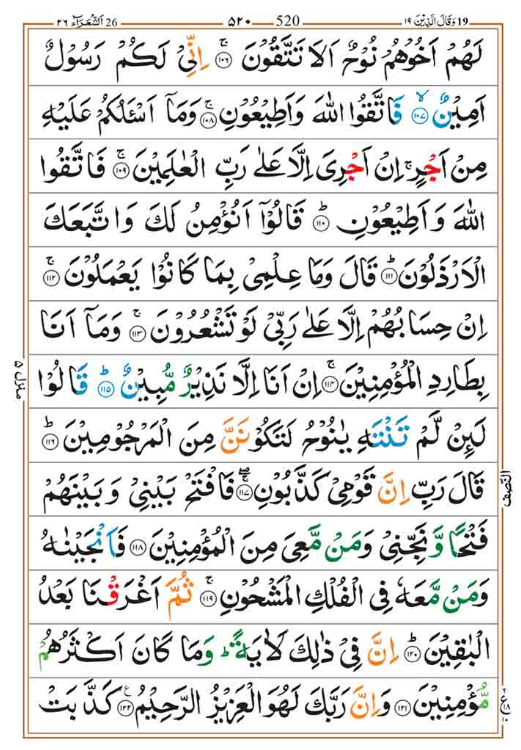 ١٩ وَقَالَ الَّذِيْنَ 19 520 ٥٢٠ 26 اَلشُّعَرَآءُ ٢٦
لَهُمْ اَخُوْهُمْ نُوْحٌ اَلَا تَتَّقُوْنَ ۚ‏ ﴿۱۰۶﴾ اِنِّىْ لَـكُمْ رَسُوْلٌ
اَمِيْنٌۙ‏ ﴿۱۰۷﴾ فَاتَّقُوا اللّٰهَ وَاَطِيْعُوْنِ‌ۚ‏ ﴿۱۰۸﴾ وَمَاۤ اَسْـَٔــلُكُمْ عَلَيْهِ
مِنْ اَجْرٍ‌ۚ اِنْ اَجْرِىَ اِلَّا عَلٰى رَبِّ الْعٰلَمِيْنَ‌ۚ‏ ﴿۱۰۹﴾ فَاتَّقُوا
اللّٰهَ وَاَطِيْعُوْنِؕ‏ ﴿۱۱۰﴾ قَالُوْۤا اَنُؤْمِنُ لَكَ وَاتَّبَعَكَ
الْاَرْذَلُوْنَؕ‏ ﴿۱۱۱﴾ قَالَ وَمَا عِلْمِىْ بِمَا كَانُوْا يَعْمَلُوْنَ‌ۚ‏ ﴿۱۱۲﴾
اِنْ حِسَابُهُمْ اِلَّا عَلٰى رَبِّىْ‌ لَوْ تَشْعُرُوْنَ‌ۚ‏ ﴿۱۱۳﴾ وَمَاۤ اَنَا
بِطَارِدِ الْمُؤْمِنِيْنَ‌ۚ‏ ﴿۱۱۴﴾ اِنْ اَنَا اِلَّا نَذِيْرٌ مُّبِيْنٌؕ‏ ﴿۱۱۵﴾ قَالُوْا
لَٮِٕنْ لَّمْ تَنْتَهِ يٰـنُوْحُ لَـتَكُوْنَنَّ مِنَ الْمَرْجُوْمِيْنَؕ‏ ﴿۱۱۶﴾
قَالَ رَبِّ اِنَّ قَوْمِىْ كَذَّبُوْنِ‌ ۖ‌ۚ‏ ﴿۱۱۷﴾ فَافْتَحْ بَيْنِىْ وَبَيْنَهُمْ
فَتْحًا وَّنَجِّنِىْ وَمَنْ مَّعِىَ مِنَ الْمُؤْمِنِيْنَ‏ ﴿۱۱۸﴾ فَاَنْجَيْنٰهُ
وَمَنْ مَّعَهٗ فِى الْفُلْكِ الْمَشْحُوْنِ‌ۚ‏ ﴿۱۱۹﴾ ثُمَّ اَغْرَقْنَا بَعْدُ
الْبٰقِيْنَؕ‏ ﴿۱۲۰﴾ اِنَّ فِىْ ذٰلِكَ لَاٰيَةً‌ ؕ وَمَا كَانَ اَكْثَرُهُمْ
مُّؤْمِنِيْنَ‏ ﴿۱۲۱﴾ وَاِنَّ رَبَّكَ لَهُوَ الْعَزِيْزُ الرَّحِيْمُ‏ ﴿۱۲۲﴾ كَذَّبَتْ
منزل ۵
النصف